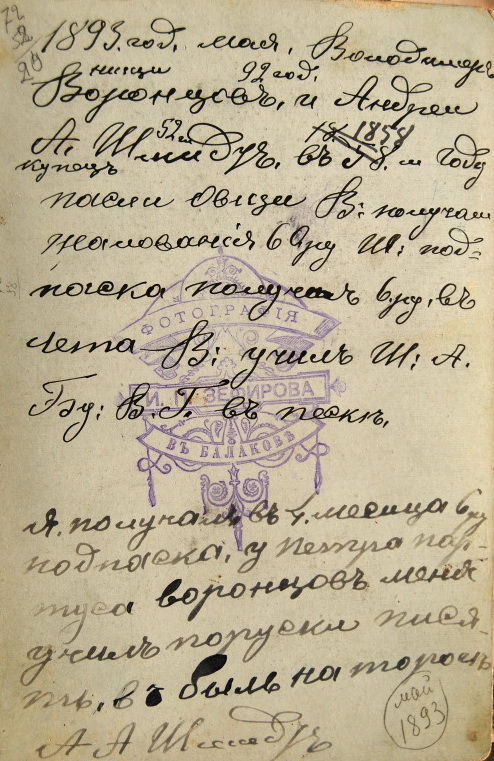 72
52
20
1893. год, мая, Володимеръ
нищи 92 год.
Воронцовъ, и Андреи
52 1858
А. Шмидтъ, въ 18. м году
купецъ
пасли овци В: получал
жалования 6 ру Ш: под-
паска получалъ 6. ру, въ
лета В: учила Ш: А.
Бу: В. Г. въ песке,
ФОТОГРАФІЯ
И. П. ЗЕФИРОВА
ВЪ БАЛАКОВѢ
Я. получалъ въ 4. месица 6 ру
подпаска, у петра пар-
туса воронцовъ меня
училъ поруски пися-
ть, в былъ на
А А Шмидтъ
май
1893